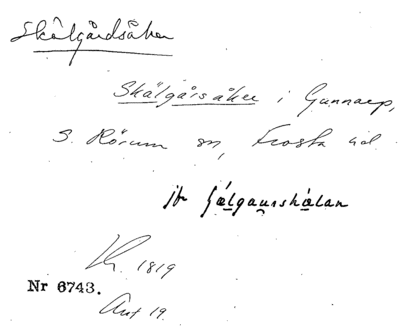 Skälgårdsåker
Skälgårsåker i Gunnarp,
S. Rörum sn, Frosta hd.
jfr Gálgaurskálan
1819
Nr 6743.
Ant 19.